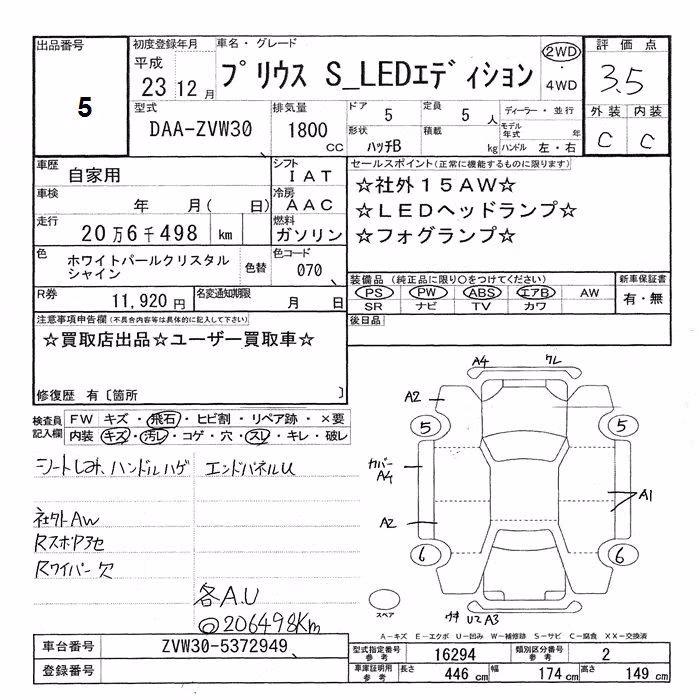 出品番号
5
初度登録年月
平成
23 12月
車名・グレード
プリウス S_LEDエディション
2WD
・
4WD
評価点
3.5
型式
DAA-ZVW30
排気量
1800
cc
ドア 5
定員 5 人
形状 ハッチB
積載 kg
ディーラー・並行
モデル年式 年
ハンドル 左・右
外装 内装
C C
車歴 自家用
シフト IAT
車検 年 月( 日)
冷房 AAC
走行 20万6千498 km
燃料 ガソリン
色 ホワイトパールクリスタル
シャイン
色替
色コード 070
R券 11,920円
名変通知期限 月 日
セールスポイント(正常に機能するものに限ります)
☆社外15AW☆
☆LEDヘッドランプ☆
☆フォグランプ☆
装備品(純正品に限り○をつけてください)
PS PW ABS エアB AW
SR ナビ TV カワ
新車保証書
有・無
後日品
注意事項申告欄(不具合内容等は具体的に記入して下さい)
☆買取店出品☆ユーザー買取車☆
修復歴 有〔箇所 〕
検査員
記入欄
FW キズ・飛石・ヒビ割・リペア跡・×要
内装 キズ・汚レ・コゲ・穴・スレ・キレ・破レ
シートしみ、ハンドルハゲ
エンドパネルU
社外AW
RスポPアセ
Rワイパー欠
各A.U
◎206498Km
A4 ワレ
A2
5 5
カバー
A4
A1
A2
6 6
スペア
ワキ U2 A3
A-キズ E-エクボ U-凹み W-補修跡 S-サビ C-腐食 XX-交換済
車台番号 ZVW30-5372949
登録番号
型式指定番号
参考
16294
類別区分番号
参考
2
車庫証明用
参考
長さ 446 cm 幅 174 cm 高さ 149 cm